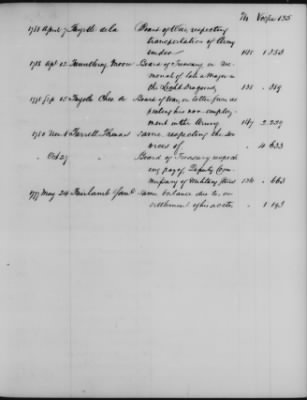 No Vol. pa 135
1780 April 7 Fayette de la Board of War respecting
transportation of Army
under 147 1 353
Board of Treasury on me-
morial of John Wager in
the Light Dragoons, 136 . 319
1778 Sep 25 Fayole Chev. de Board of War, on letter from, re-
specting his non-employ-
ment in the Army 147 2 239
1780 Nov 6 Farrell Thomas same, respecting the ser-
vices of . 4 633
Oct 27 Board of Treasury respect-
ing pay of Deputy Com-
missary of Military Stores 136 . 663
1777 May 24 Fairlamb Saml same balance due to, on
settlement of his accts . 1 193